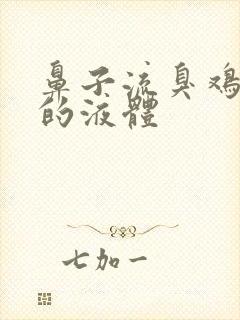 鼻子流臭鸡
的液體
七加一